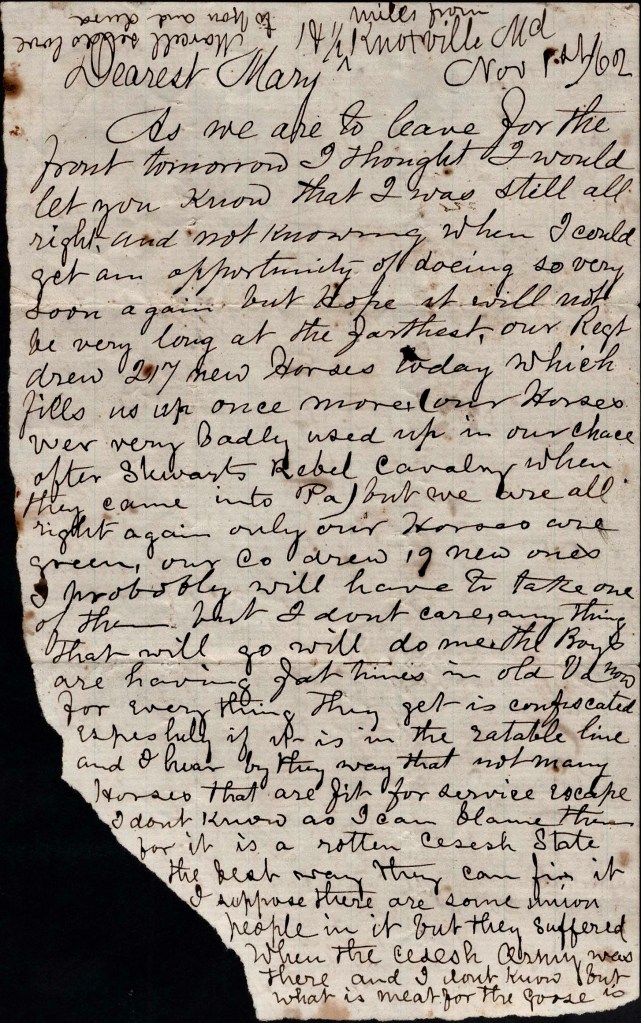 Marcell sends love
to you and Lusa
1 & 1/2 miles from
Knoxville Md
Dearest Mary Nov 1st/62
As we are to leave for the
front tomorrow I thought I would
let you Know that I was still all
right, and not Knowing when I could
get an opportunity of doeing so very
soon again but Hope it will not
be very long at the farthest, our Regt
drew 217 new Horses today which
fills us up once more, (our Horses
wer very Badly used up in our chace
after Skwarts Rebel Cavalry when
they came into Pa) but we are all
right again only our Horses are
green, our Co drew 19 new ones
I probobly will have to take one
of them but I dont care, any thing
that will go will do me, the Boys
are having fat times in old Va now
for every thing they get is confiscated
Espeshuly if it is in the eatable line
and I hear by they way that not many
Horses that are fit for service Escape
I dont Know as I can blame them
for it is a rotten Cesesh State
the best way they can fix it
I suppose there are some union
people in it but they suffered
When the cesesh Army was
there and I dont Know but
what is meat for the goose is